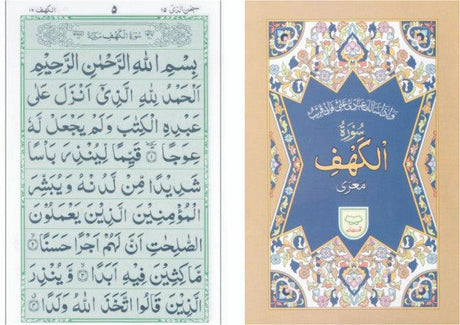 سبحن الذي ١٥ ٥ الكهف ١٨
سورة الكهف مكية
بِسْمِ اللهِ الرَّحْمٰنِ الرَّحِيْمِ
اَلْحَمْدُ لِلّٰهِ الَّذِيْٓ اَنْزَلَ عَلٰى
عَبْدِهِ الْكِتٰبَ وَلَمْ يَجْعَلْ لَّهٗ
عِوَجًا ١ قَيِّمًا لِّيُنْذِرَ بَاْسًا
شَدِيْدًا مِّنْ لَّدُنْهُ وَيُبَشِّرَ
الْمُؤْمِنِيْنَ الَّذِيْنَ يَعْمَلُوْنَ
الصّٰلِحٰتِ اَنَّ لَهُمْ اَجْرًا حَسَنًا ٢
مَّاكِثِيْنَ فِيْهِ اَبَدًا ٣ وَّيُنْذِرَ
الَّذِيْنَ قَالُوا اتَّخَذَ اللهُ وَلَدًا ٤
وإذا سألك عبادي عني فإني قريب
سُورَةُ
الكَهْفِ
معرى